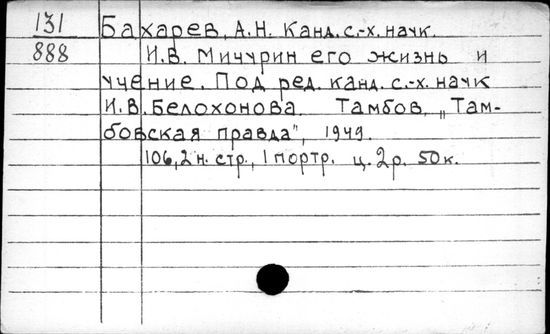 131 Бахарев, А.Н. Канд. с.-х. наук.
888 И.В. Мичурин его жизнь и
учение. Под ред. канд. с.-х. наук
И.В. Белохонова. Тамбов, „Там-
бовская правда", 1949.
106, 2 н. стр., 1 портр. ц. 2 р. 50 к.